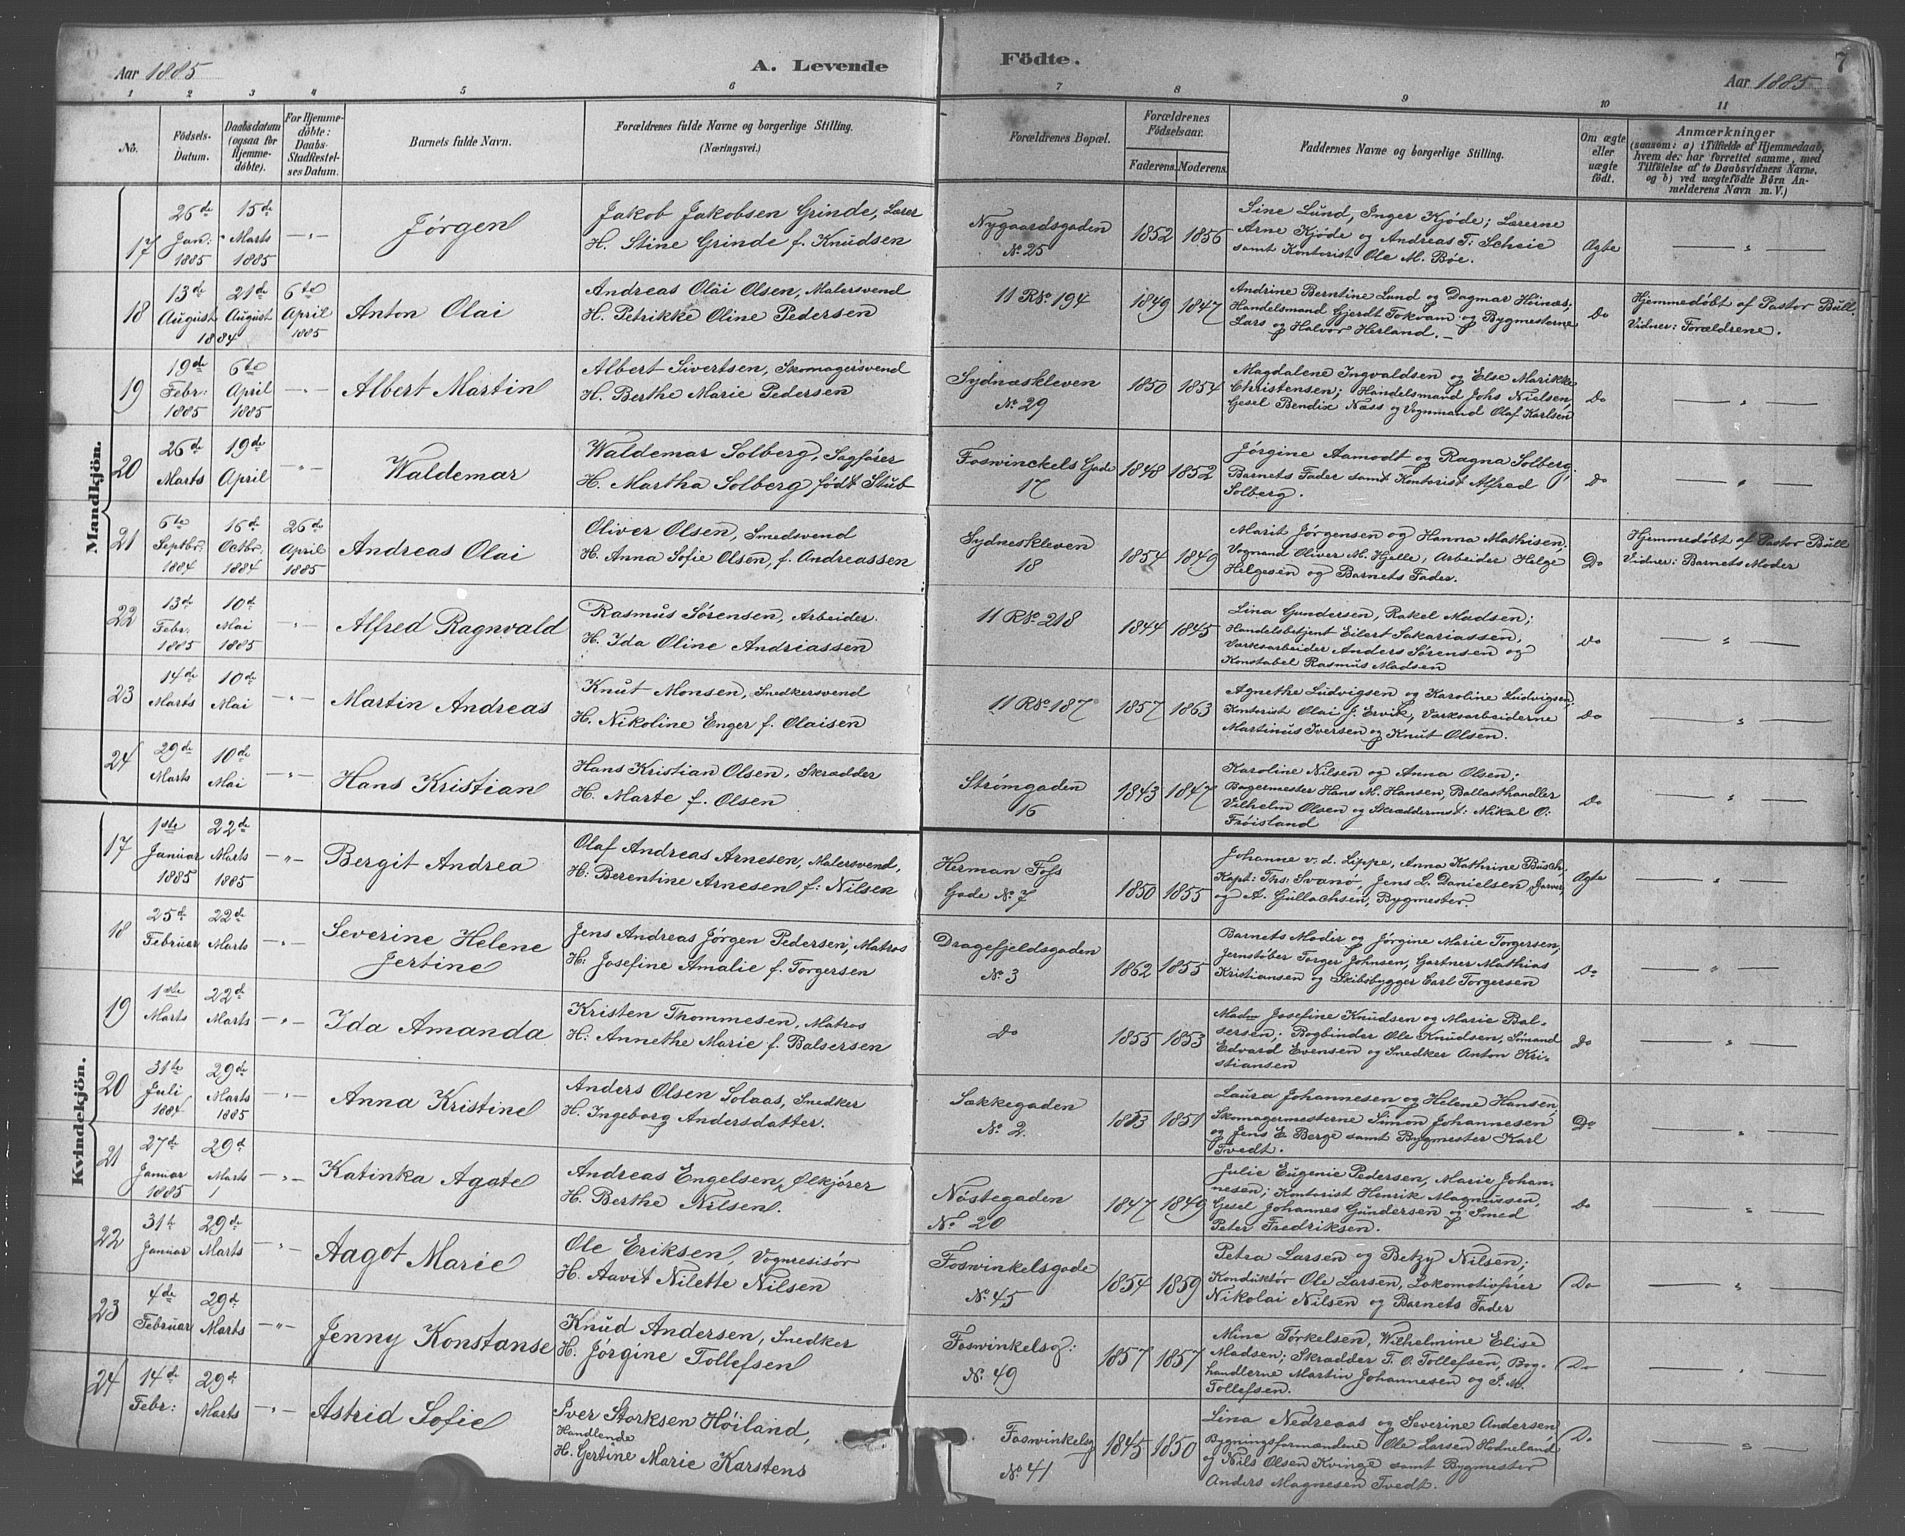 Aar 1885
A. Levende Födte.
7
Aar 1885
1 2 3 4 5 6 7 8 9 10 11
No.
Födsels-
Datum.
Daabsdatum
(ogsaa for
Hjemme-
döbte).
For Hjemme-
döbte:
Daabs-
Stadfæstel-
ses Datum.
Barnets fulde Navn.
Forældrenes fulde Navne og borgerlige Stilling.
(Næringsvei.)
Forældrenes Bopæl.
Forældrenes
Födselsaar.
Faderens. Moderens.
Faddernes Navne og borgerlige Stilling.
Om ægte
eller
uægte
födt.
Anmærkninger
(saasom: a) i Tilfælde af Hjemmedaab,
hvem der har forrettet samme, med
Tilföielse af to Daabsvidners Navne,
og b) ved uægtefödte Börn An-
melderens Navn m. V.)
Mandkjön.
17
26de
Jan.
1885
15de
Marts
1885
Jørgen
Jakob Jakobsen Grinde, Lærer
H. Stine Grinde f. Knudsen
Nygaardsgaden
No. 25
1852 1856
Sine Lund, Inger Kjøde; Lærerne
Arne Kjøde og Andreas T. Scheie
samt Kontorist Ole M. Bøe.
Ægte
18
13de
August
1884
21de
August
6te
April
1885
Anton Olai
Andreas Olai Olsen, Malersvend
H. Petrikke Oline Pedersen
11 R No. 194
1849 1847
Andrine Berntine Lund og Dagmar Höinæs;
Handelsmand Gjerdt Tokvam og Bygmesterne
Lars og Halvor Herland.
Do
Hjemmedøbt af Pastor Bull.
Vidner: Forældrene.
19
19de
Febr:
1885
6te
April
1885
Albert Martin
Albert Sivertsen, Skomagersvend
H. Berthe Marie Pedersen
Sydnæskleven
No. 29
1850 1854
Magdalene Ingvaldsen og Else Marikke
Christensen; Handelsmand Johs Nielsen,
Gesel Bendix Næss og Vognmand Olaf Karlsen
Do
20
26de
Marts
19de
April
Waldemar
Waldemar Solberg, Sagfører
H. Martha Solberg født Stub
Foswinckels Gade
17
1848 1852
Jørgine Aamodt og Ragna Solberg,
Barnets Fader samt Kontorist Alfred
Solberg.
Do
21
6te
Septbr.
1884
16de
Octbr.
1884
26de
April
1885
Andreas Olai
Oliver Olsen, Smedsvend
H. Anna Sofie Olsen, f. Andreassen
Sydneskleven
18
1854 1849
Marit Jörgensen og Hanna Mathisen,
Vognm. Oliver M. Hjelle, Arbeider Helge
Helgesen og Barnets Fader.
Do
Hjemmedøbt af Pastor Bull
Vidner: Barnets Moder
22
13de
Febr.
1885
10de
Mai
1885
Alfred Ragnvald
Rasmus Sørensen, Arbeider
H. Ida Oline Andriassen
11 R No. 218
1844 1845
Lina Gundersen, Rakel Madsen;
Handelsbetjent Eilert Sakariassen,
Værksarbeider Anders Sørensen og
Konstabel Rasmus Madsen
Do
23
14de
Marts
10de
Mai
Martin Andreas
Knut Monsen, Snedkersvend
H. Nikoline Enger f. Olaisen
11 R No. 187
1857 1863
Agnethe Ludvigsen og Karoline Ludvigsen,
Kontorist Olai J. Ervik, Værksarbeiderne
Martinus Iversen og Knut Olsen.
Do
24
29de
Marts
10de
Mai
Hans Kristian
Hans Kristian Olsen, Skrædder
H. Marte f. Olsen
Strømgaden
16
1843 1847
Karoline Nilsen og Anna Olsen;
Bagermester Hans M. Hansen, Ballasthandler
Vilhelm Olsen og Skræddermst: Mikal O.
Frøisland
Do
Kvindekjön.
17
1ste
Januar
1885
22de
Marts
1885
Bergit Andrea
Olaf Andreas Arnesen, Malersvend,
H. Berentine Arnesen f: Nilsen
Herman Foss
Gade No. 7
1850 1855
Johanne v. d. Lippe, Anna Kathrine Busch,
Kapt: Ths. Svanö, Jens L. Danielsen, Farver,
og A. Gullachsen, Bygmester.
Ægte
18
25de
Februar
22de
Marts
Severine Helene
Jertine
Jens Andreas Jørgen Pedersen, Matros
H: Josefine Amalie f. Torgersen
Dragefjeldsgaden
No. 3
1862 1855
Barnets Moder og Jörgine Marie Torgersen,
Jernstöber Torger Johnsen, Gartner Mathias
Kristiansen og Skibsbygger Carl Torgersen
Do
19
1ste
Marts
22de
Marts
Ida Amanda
Kristen Thommesen, Matros
H: Annethe Marie f. Balsersen
Do
1855 1853
Madm Josefine Knudsen og Marie Bal-
sersen; Bogbinder Ole Knudsen, Sömand
Edvard Evensen og Snedker Anton Kri-
stiansen
Do
20
31te
Juli
1884
29de
Marts
1885
Anna Kristine
Anders Olsen Solaas, Snedker
H. Ingeborg Andersdatter.
Sækkegaden
No. 2.
1853 1851
Laura Johannesen og Helene Hansen,
Skomagermesterne Simon Johannesen
og Jens E. Berge samt Bygmester Karl
Tvedt.
Do
21
27de
Januar
1885
29de
Marts
Katinka Agate
Andreas Engelsen, Ølkjører
H. Berthe Nilsen.
Nöstegaden
No. 20
1847 1849
Julie Eugenie Pedersen, Marie Johan-
nesen; Kontorist Henrik Magnussen,
Gesel Johannes Gundersen og Smed
Peter Fredriksen.
Do
22
31te
Januar
29de
Marts
Aagot Marie
Ole Eriksen, Vognresisør
H. Aavit Nilette Nilsen
Foswinkelsgade
No. 45
1854 1859
Petra Larsen og Betzy Nilsen;
Konduktör Ole Larsen, Lokomotivfører
Nikolai Nilsen og Barnets Fader
Do
23
4de
Februar
29de
Marts
Jenny Konstanse
Knud Andersen, Snedker
H. Jörgine Tollefsen
Foswinkelsg:
No. 49
1857 1857
Mina Törkelsen, Wilhelmine Elise
Madsen; Skrædder T. O. Tollefsen, Bog-
handlerne Martin Johannesen og J. M.
Tollefsen.
Do
24
14de
Febr:
29de
Marts
Astrid Sofie
Iver Storksen Høiland,
Handlende
H. Gertine Marie Karstens
Foswinkelsg
No. 41
1845 1850
Lina Nedreaas og Severine Andersen
Bygningsformændene Ole Larsen Hodneland
og Nils Olsen Kvinge samt Bygmester
Anders Magnesen Tvedt.
Do